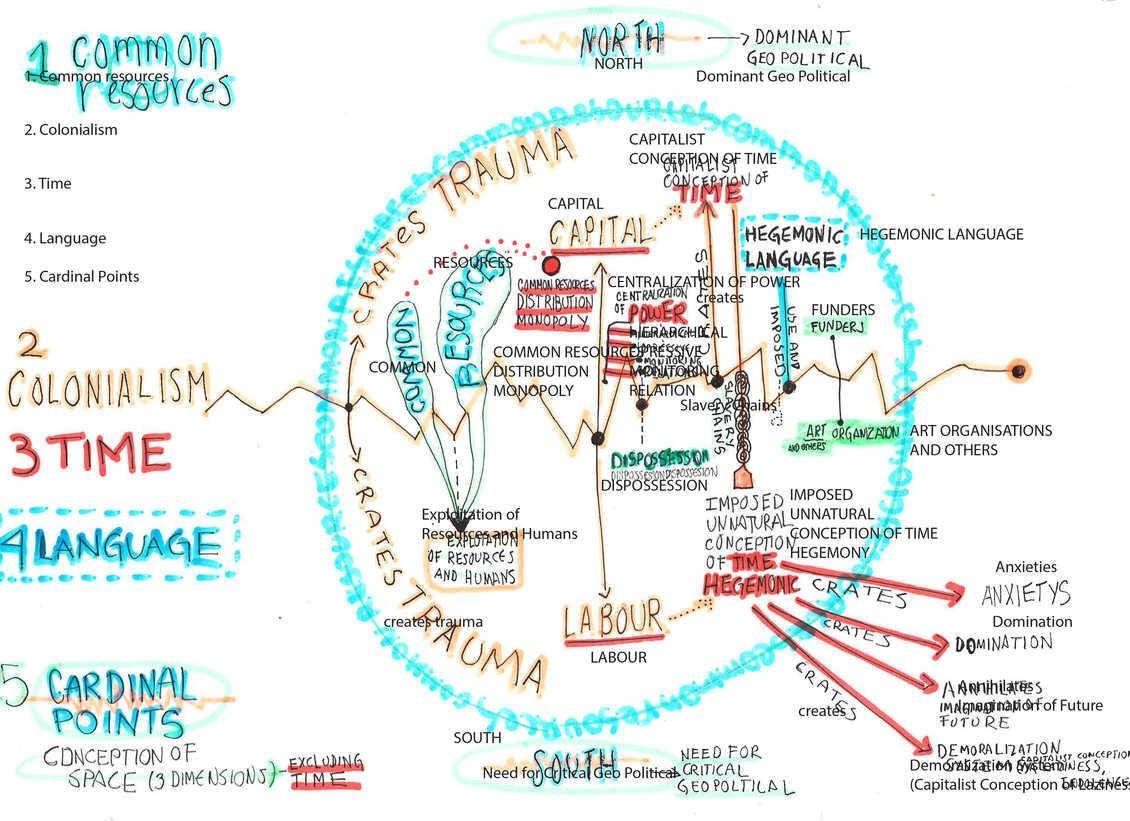 1 Common
resources
1. Common resources
2. Colonialism
3. Time
4. Language
5. Cardinal Points
2
COLONIALISM
3 TIME
4 LANGUAGE
5 CARDINAL
POINTS
CONCEPTION OF
SPACE (3 DIMENSIONS) - EXCLUDING
TIME
NORTH
NORTH
DOMINANT
GEO POLITICAL
Dominant Geo Political
CRATES TRAUMA
CAPITALIST
CONCEPTION OF TIME
CAPITALIST
CONCEPTION OF
TIME
CAPITAL
CAPITAL
HEGEMONIC
LANGUAGE
HEGEMONIC LANGUAGE
RESOURCES
COMMON
RESOURCES
COMMON
COMMON RESOURCES
DISTRIBUTION
MONOPOLY
COMMON RESOURCE
DISTRIBUTION
MONOPOLY
CENTRALIZATION OF POWER
CENTRALIZATION
OF POWER
HIERARCHICAL
OPRESSIVE
MONITORING
RELATION
CREATES
creates
USE AND
IMPOSED
FUNDERS
FUNDERS
Slavery Chains
SLAVERY
CHAINS
ART ORGANIZATION
AND OTHERS
ART ORGANISATIONS
AND OTHERS
DISPOSSESSION
DISPOSSESSION
Exploitation of
Resources and Humans
EXPLOTATION
OF RESOURCES
AND HUMANS
IMPOSED
UNNATURAL
CONCEPTION
OF TIME
HEGEMONIC
IMPOSED
UNNATURAL
CONCEPTION OF TIME
HEGEMONY
CRATES TRAUMA
creates trauma
LABOUR
LABOUR
CRATES
Anxieties
ANXIETYS
CRATES
Domination
DOMINATION
CRATES
creates
ANNIHILATES
IMAGINATION OF
FUTURE
Annihilates
Imagination of Future
DEMORALIZATION
SOUTH
SOUTH
NEED FOR
CRITICAL
GEOPOLITICAL
Need for Critical Geo Political
(Capitalist Conception of Laziness